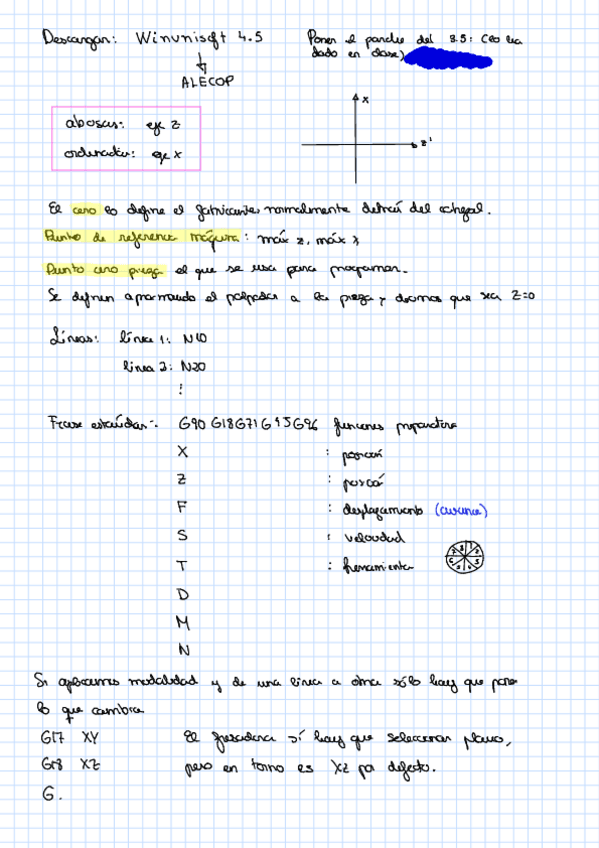 Descargar: Winunisoft 4.5
↓
ALECOP
Poner el parche del 3.5: (lo ha
dado en clase)
abcisas: eje Z
ordenadas: eje X
X
Z
El cero lo define el fabricante, normalmente detrás del cabezal.
Punto de referencia máquina: máx z, máx x
Punto cero pieza el que se usa para programar.
Se definen aproximando el palpador a la pieza y decimos que sea Z=0
Líneas: línea 1: N10
línea 2: N20
⋮
Frase estándar: G90 G18 G71 G95 G96 funciones preparatorias
X : posición
Z : posición
F : desplazamiento (avance)
S : velocidad
T : herramienta
D
M
N
Si aplicamos modalidad y de una línea a otra sólo hay que poner
lo que cambia
G17 XY El fresadora sí hay que seleccionar plano,
G18 XZ pero en torno es XZ por defecto.
G.